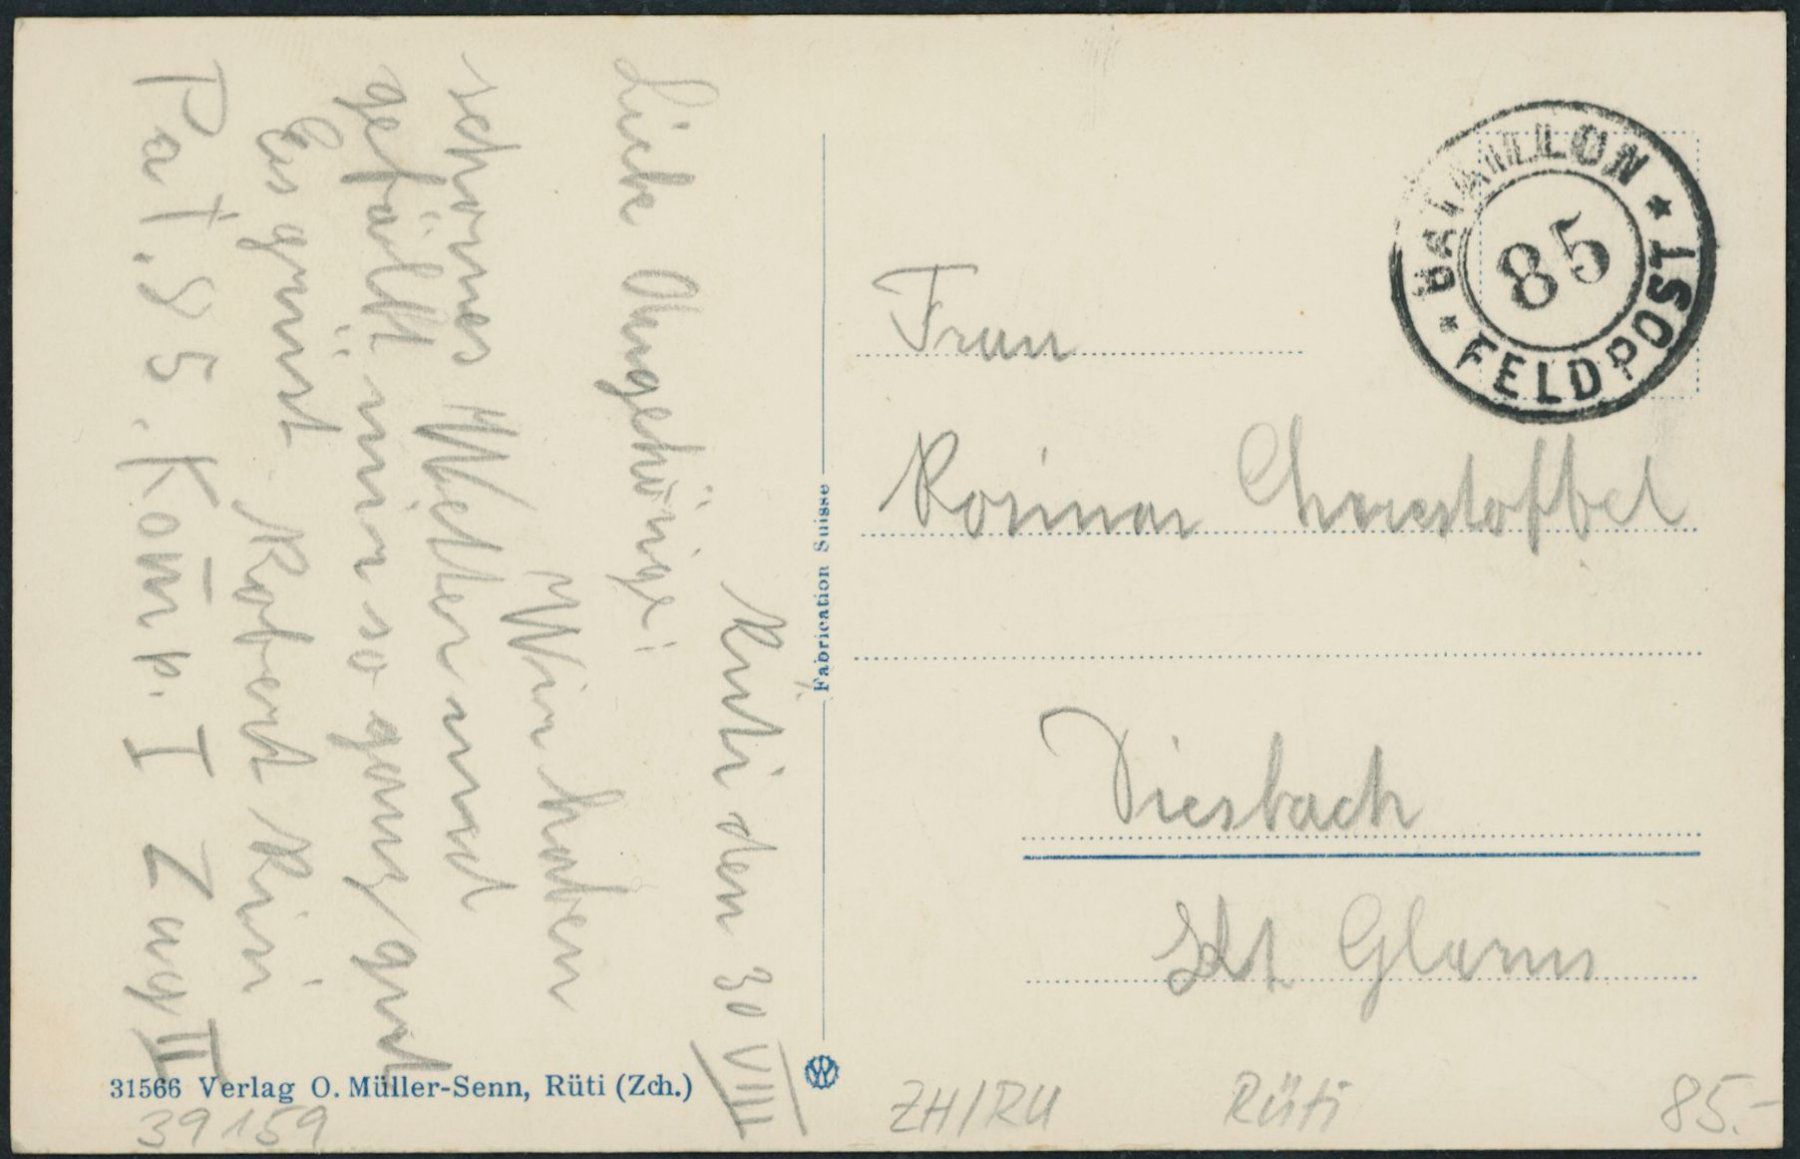 Rüti den 30 VIII
Liebe Angehörige!
Wir haben
schönes Wetter und
gefällt mir so ganz gut
Es grüsst Robert
Bat. 85. Komp. I Zug II
Fabrication Suisse
31566 Verlag O. Müller-Senn, Rüti (Zch.)
39159
BATAILLON
85
FELDPOST
Frau
Rosina Christoffel
Diesbach
Kt Glarus
ZH/RU Rüti 85.-